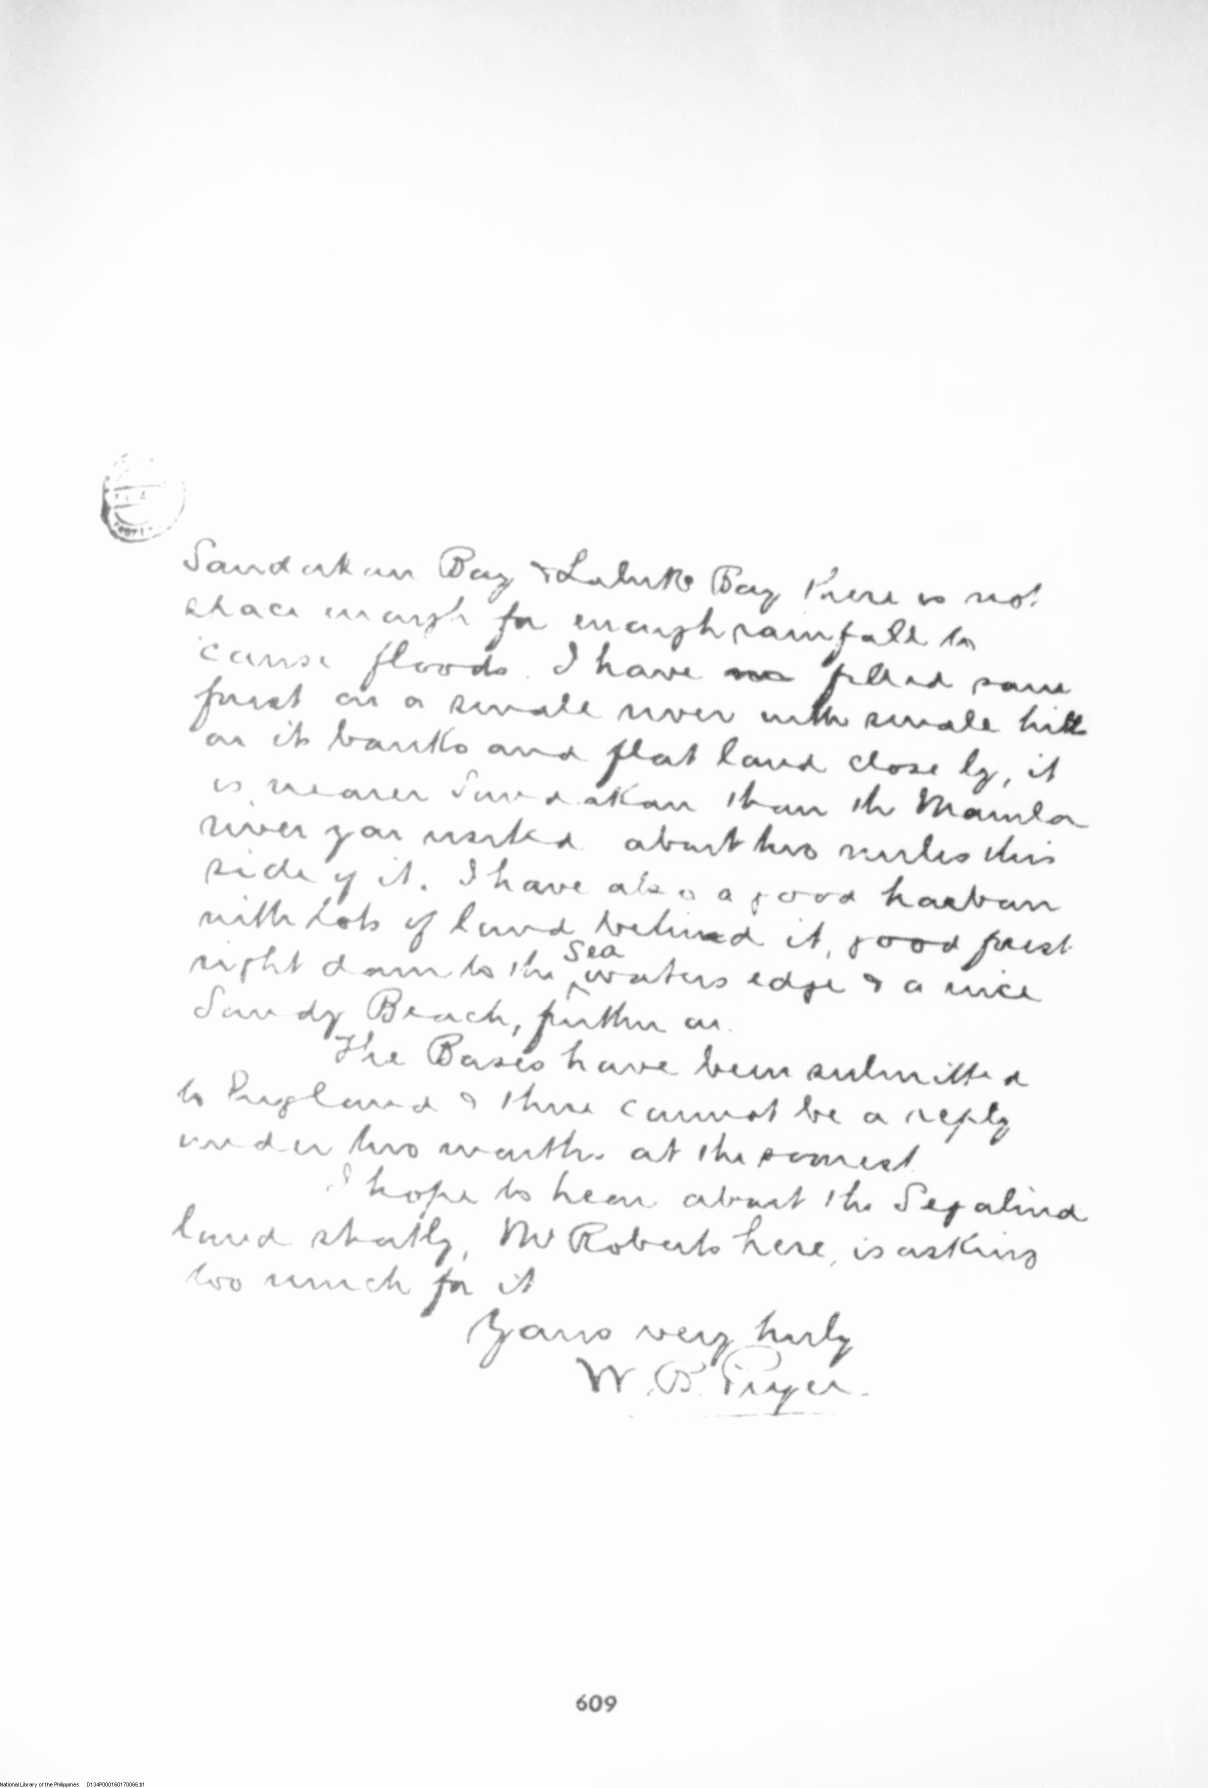 Sandakan Bay & Labuk Bay there is not
space enough for enough rainfall to
cause floods. I have felled some
forest on a small river with small hills
on its banks and flat land close by, it
is nearer Sandakan than the Mamla
river you visited about two miles this
side of it. I have also a good harbour
with lots of land behind it, good forest
right down to the sea waters edge & a nice
Sandy Beach, further on.
The Bases have been submitted
to England & there cannot be a reply
under two months at the soonest
I hope to hear about the Segaliud
land shortly, Mr Roberts here, is asking
too much for it
Yours very truly
W. B. Pryer.
609
National Library of the Philippines